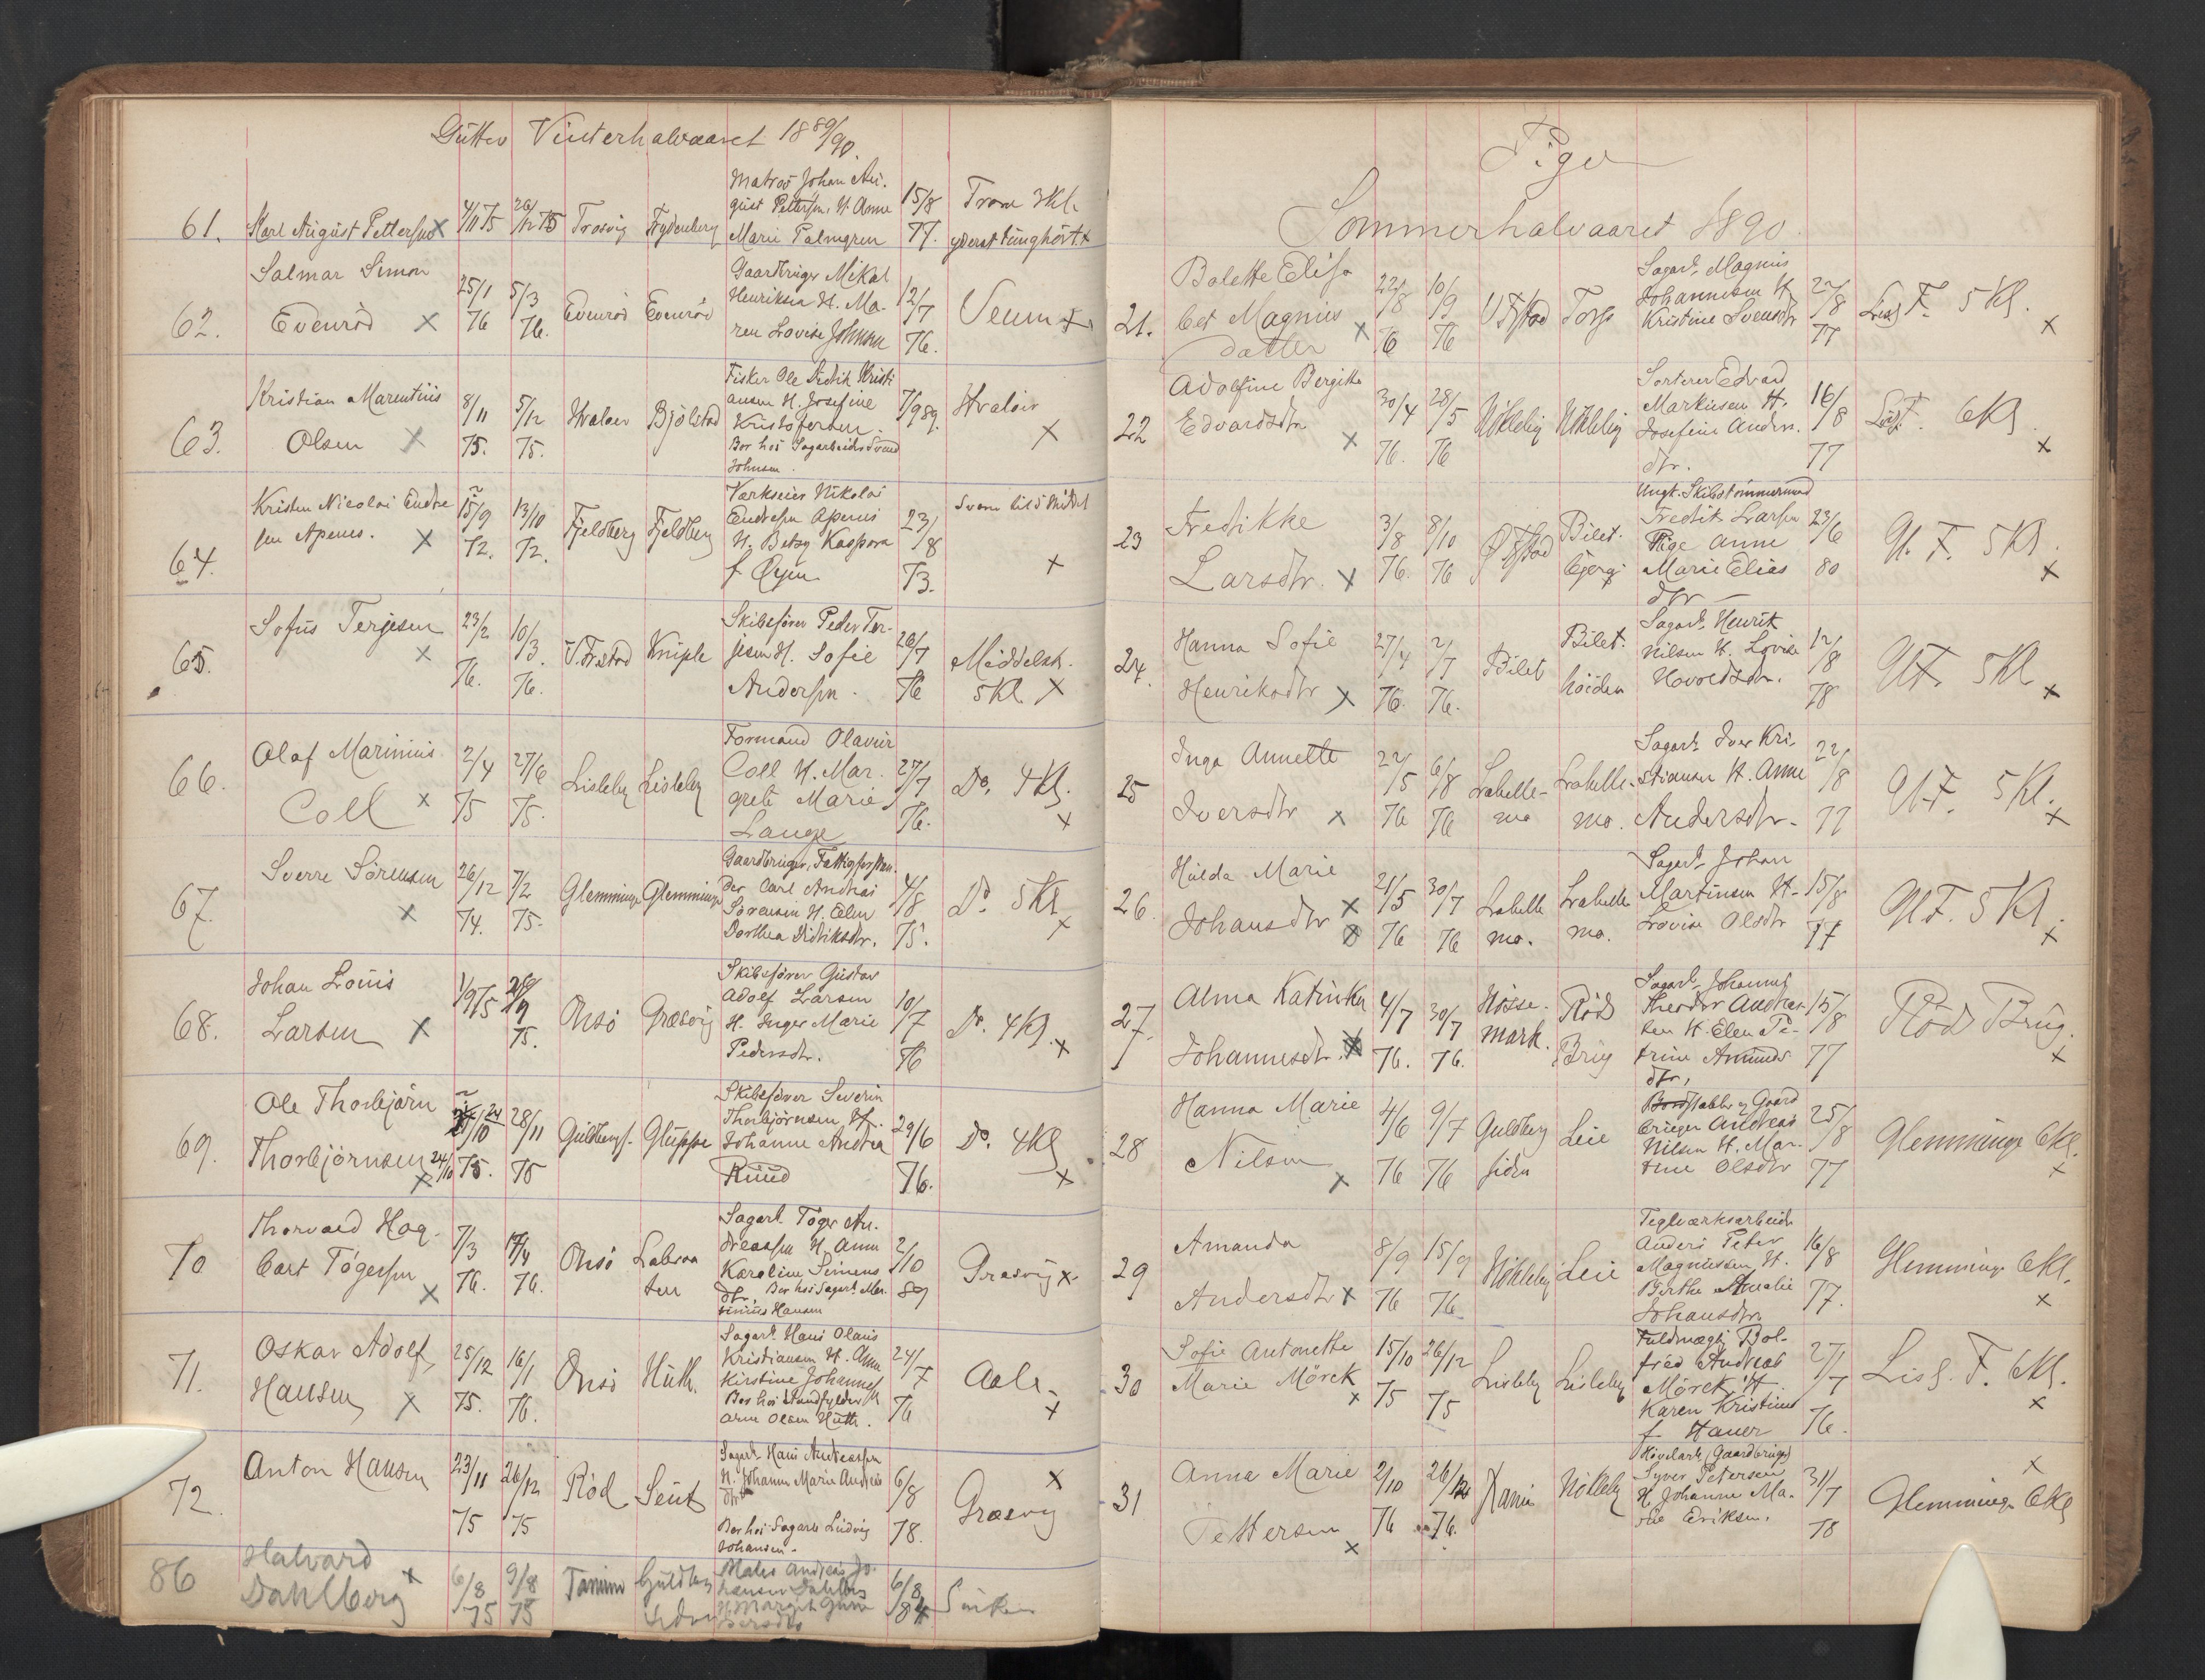 Gutter Vinterhalvaaret 1889/90.
61. Karl August Pettersen x 4/11 75 26/12 75 Trosvig Frydenberg Matros Johan Au-
gust Pettersen, H. Anne
Marie Palmgren 15/8 77. Trara 3Kl.
yderst tunghört x
62. Salmar Simon
Evenröd x 25/1 76 5/3 76. Evenröd Evenröd Gaardbruger Mikal
Henriksen H. Ma-
ren Lovise Johnsen 12/7 76. Veum x
63. Kristian Marentius
Olsen x 8/11 75. 5/12 75. Hvaler Bjölstad Fisker Ole Didrik Kristi
ansen H. Josefine
Kristofersen.
Bor hos Sagarbeider Svend
Johnsen. 7/9 89. Hvaler x
64. Kristen Nicolai Endre
sen Apenes. x 15/9 72. 13/10 72. Fjeldberg Fjeldberg Værkseier Nikolai
Endresen Apenes
H. Betzy Kaspara
f. Öyen 23/8 73. x
65. Sofus Terjesen x 23/2 76. 10/3 76. V. Fr.stad Kniple Skibsförer Peder Ter-
jesen H. Sofie
Andersen. 26/7 76 Middelsk.
5Kl. x
66. Olaf Marinius
Coll x 2/4 75 27/6 75. Lisleby Lisleby Formand Olavus
Coll H. Mar-
grete Marie
Lange 27/7 76. Do. 4Kl. x
67. Sverre Sörensen x 26/12 74. 7/2 75. Glemminge Glemminge Gaardbruger, Fattigforstan-
der Carl Andreas
Sörensen H. Elen
Dorthea Didriksdtr. 4/8 75. Do. 5Kl x
68. Johan Louis
Larsen x 1/9 75 75. Onsö Græsvig Skibsförer Gustav
Adolf Larsen
H. Inger Marie
Pedersdtr. 10/7 76 Do. 4Kl. x
69. Ole Thorbjörn
Thorbjörnsen 24/10 x 75. 28/11 75 Guldbergs. Gluppe Skibsförer Severin
Thorbjörnsen H.
Johanne Andrea
Ruud 29/6 76. Do. 4Kl x
70 Thorvald Hag-
bart Tögersen x 7/3 76. 17/4 76. Onsö Labraa
ten Sagarb. Töger An-
dreassen H. Anne
Karoline Simens
dtr. Bor hos Sagarb. Mar-
tinius Hansen 2/10 89 Græsvig x
71. Oskar Adolf
Hansen x 25/12 75. 16/1 76. Onsö Huth. Sagarb. Hans Olaus
Kristiansen H. Anne
Kirstine Johannes
Bor hos
Arne Olsen Huth. 24/7 76 Aale. x
72. Anton Hansen 23/11 75 26/12 75 Röd Seut Sagarb. Hans Andreassen
H. Johanne Marie Andreas
dtr.
Bor hos Sagarb. Ludvig
Johansen. 6/8 78. x
Græsvig
86 Halvard
Dahlberg x 6/8 75 9/8 75 Guldberg
siden Andreas Jo-
hansen Dahlberg
H. Margit Gunn 6/8 84
Piger
Sommerhalvaaret 1890.
21. Bolette Elisa
bet Magnus
datter x 22/8 76 10/9 76 V. Fr.stad Torp Sagarb. Magnus
Johannesen H.
Kristine Svensdtr 22/8 77 Lisl. F. 5 Kl. x
22 Adolfine Bergitte
Edvardsdtr x 30/4 76. 28/5 76 Nökleby Nökleby Sorterer Edvard
Markusen H.
Josefine Anders.
dtr. 16/8 77 Lisl. F. 6Kl. x
23 Fredrikke
Larsdtr. x 3/8 76. 8/10 76 Ö. Fr.stad Bilet.
bjerg. Ungk. Skibstömmermand
Fredrik Larsen
Pige Anne
Marie Elias
dtr 23/6 80 Gl. F. 5Kl. x
24. Hanna Sofie
Henriksdtr x 27/4 76. 2/7 76. Bilet Bilet.
höiden Sagarb. Henrik
Nilsen H. Lovise
Hovoldsdtr. 12/8 78 Gl.F. 5Kl x
25 Inga Annette
Iversdtr x 22/5 76 6/8 76 Labelle-
mo Labelle-
mo. Sagarb. Iver Kri-
stiansen H. Anne
Andersdtr. 22/8 77 Gl.F. 5Kl. x
26. Hulda Marie
Johansdtr x 21/5 76 30/7 76 Labelle
mo. Labelle
mo. Sagarb. Johan
Martinsen H.
Lovise Olsdtr 15/8 77 Gl.F. 5Kl. x
27. Alma Katinka
Johannesdtr. x 4/7 76. 30/7 76. Hasse-
mark. Röds
Brug Sagarb. Johannes
Theodor Andrea-
sen H. Elen Pe-
trine Amunds
dtr. 15/8 77 Röds Brug. x
28 Hanna Marie
Nilsen x 4/6 76 9/7 76 Guldberg
siden Leie Bordstabler og Gaard
bruger Andreas
Nilsen H. Mar-
tine Olsdtr 25/8 77 Glemminge 6Kl. x
29 Amanda
Andersdtr x 8/9 76 15/9 76 Nökleby Leie Teglværksarbeider
Anders Peter
Magnussen H.
Birthe Amalie
Johansdtr. 16/8 77. Glemminge 6Kl. x
30 Sofie Antonette
Marie Mörck x 15/10 75 26/12 75 Lisleby Lisleby Fuldmægtig Bol-
fred Andreas
Mörck H.
Karen Kristine
f. Hauer 27/7 76. Lisl. F. 6Kl. x
31 Anna Marie
Pettersen x 2/10 76 26/12 76. Nökleby Hövelarb. (Gaardbruger)
Syver Petersen
H. Johanne Ma-
rie Eriksen. 31/7 78 x
Glemminge 6Kl